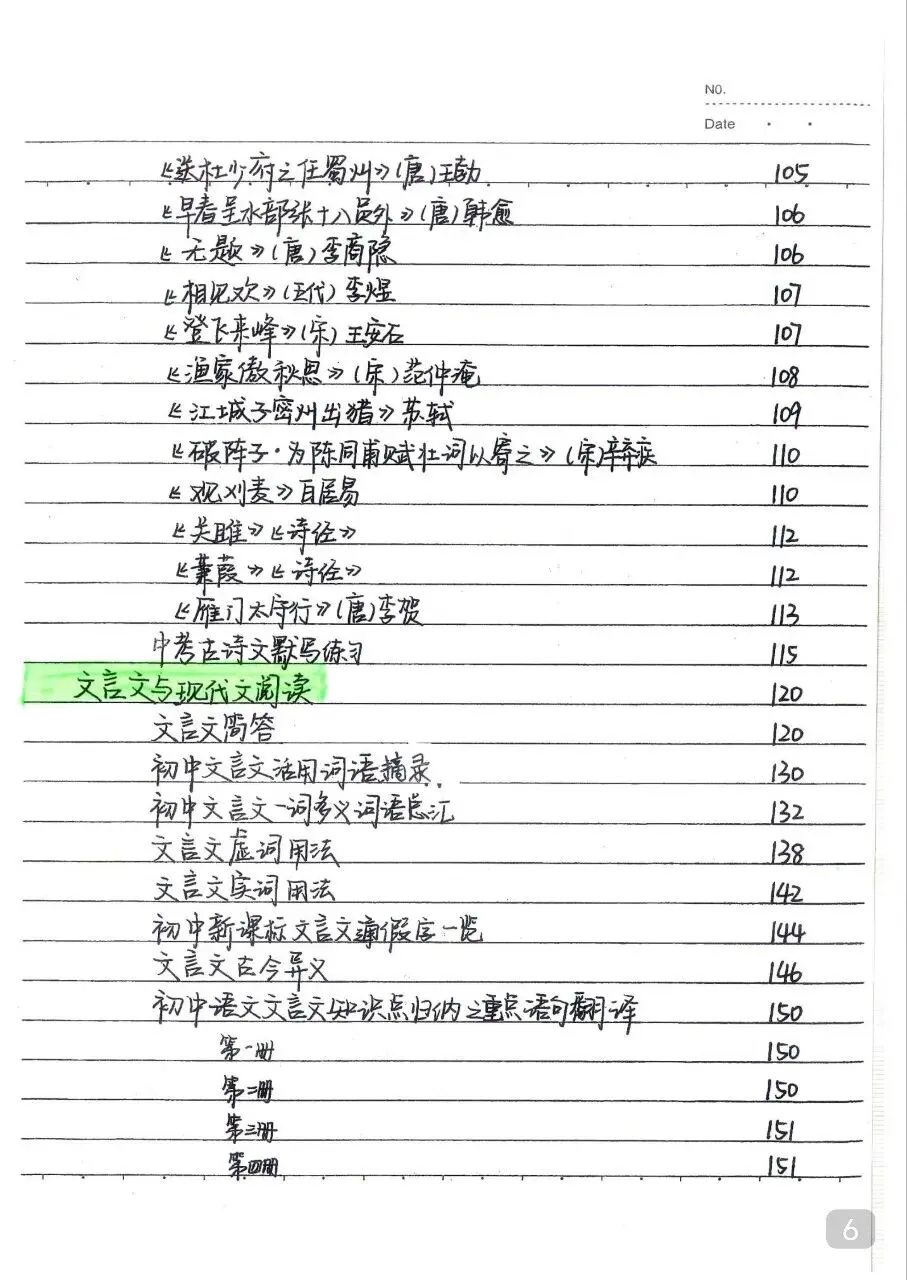 NO.
Date
《送杜少府之任蜀州》(唐)王勃 105
《早春呈水部张十八员外》(唐)韩愈 106
《无题》(唐)李商隐 106
《相见欢》(五代)李煜 107
《登飞来峰》(宋)王安石 107
《渔家傲秋思》(宋)范仲淹 108
《江城子密州出猎》苏轼 109
《破阵子·为陈同甫赋壮词以寄之》(宋)辛弃疾 110
《观刈麦》白居易 110
《关雎》《诗经》 112
《蒹葭》《诗经》 112
《雁门太守行》(唐)李贺 113
中考古诗文默写练习 115
文言文与现代文阅读 120
文言文简答 120
初中文言文活用词语摘录 130
初中文言文一词多义词语总汇 132
文言文虚词用法 138
文言文实词用法 142
初中新课标文言文通假字一览 144
文言文古今异义 146
初中语文文言文知识点归纳之重点语句翻译 150
第一册 150
第二册 150
第三册 151
第四册 151
6